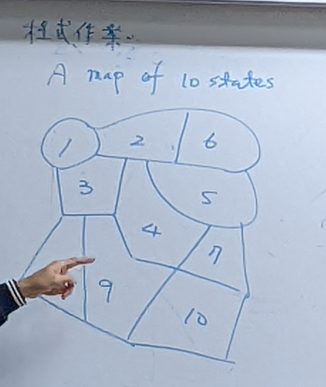 程式作業:
A map of 10 states
1
2
6
3
5
4
7
9
10